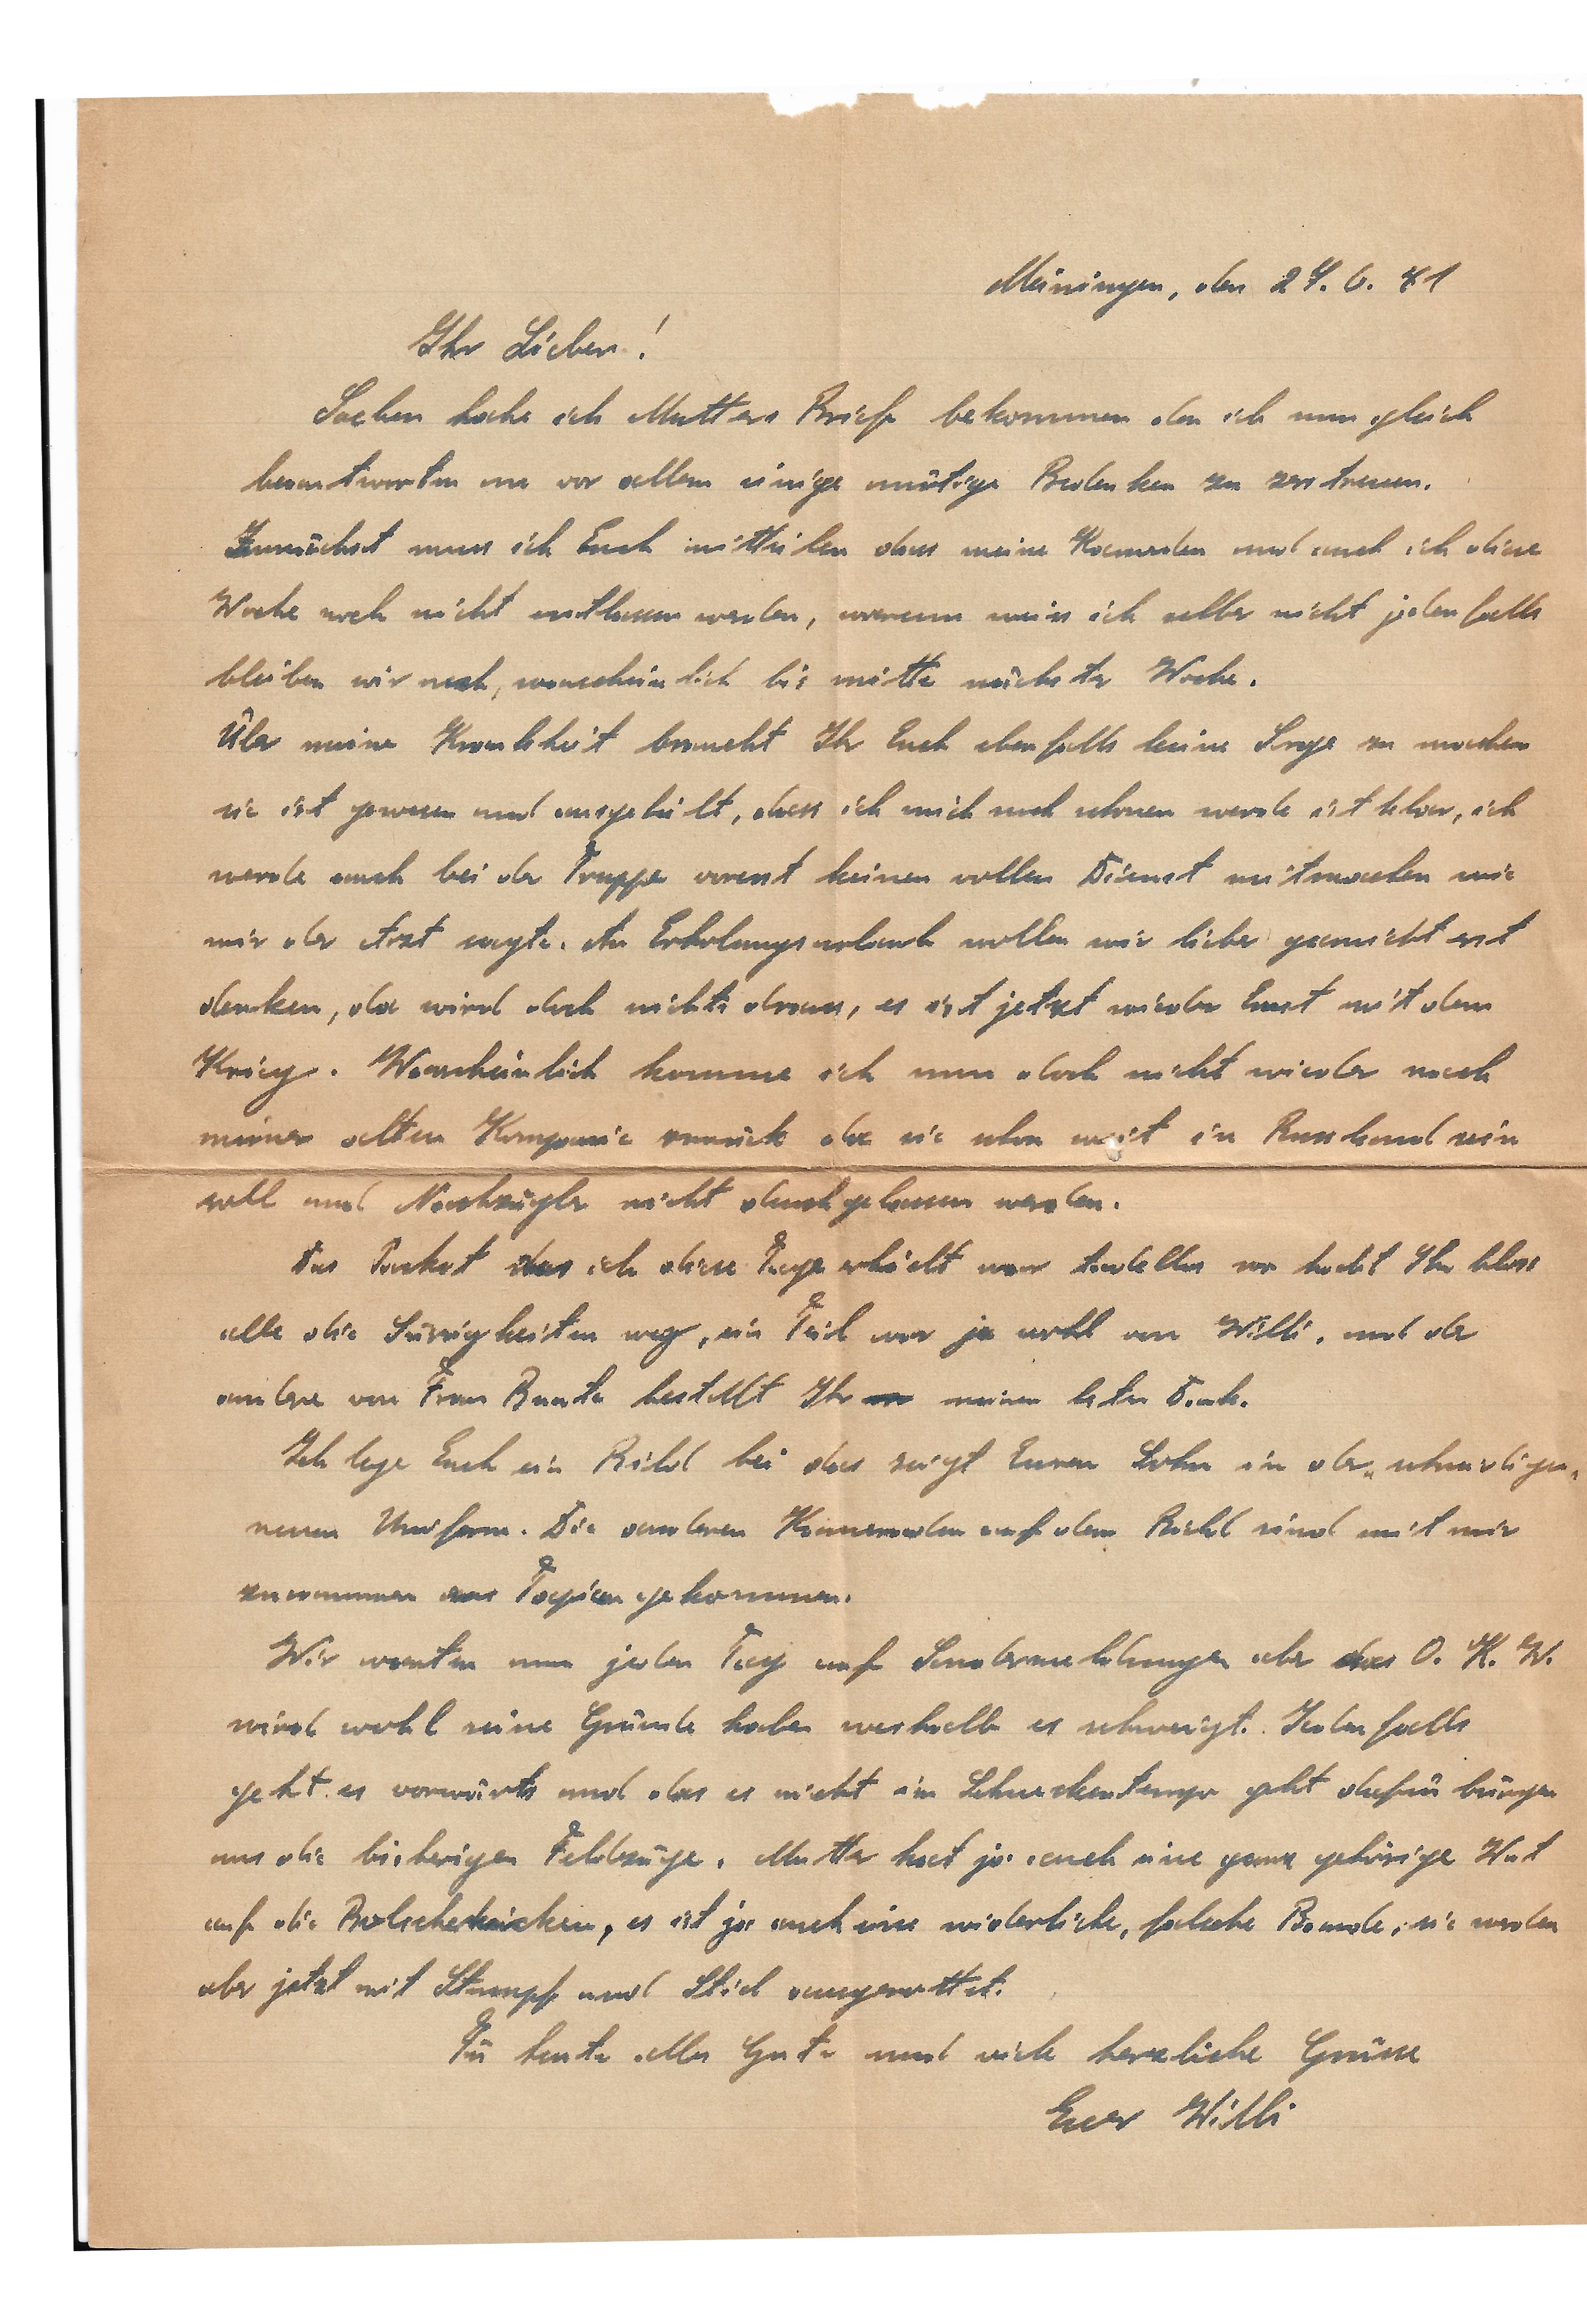 Meiningen, den 24. 6. 41
Ihr Lieben!
Soeben habe ich Mutters Brief bekommen den ich nun gleich
beantworten um vor allem einige unnötige Bedenken zu zerstreuen.
Zunächst muss ich Euch mitteilen dass meine Kameraden und auch ich diese
Woche noch nicht entlassen werden, warum weiss ich selber nicht jedenfalls
bleiben wir noch, warscheinlich bis mitte nächster Woche.
Über meine Krankheit braucht Ihr Euch ebenfalls keine Sorge zu machen
sie ist gewesen und ausgeheilt, dass ich mich noch schonen werde ist klar, ich
werde auch bei der Truppe vorerst keinen vollen Dienst mitmachen wie
mir der Arzt sagte. An Erholungsurlaub wollen wir lieber garnicht erst
denken, da wird doch nichts draus, es ist jetzt wieder Ernst mit dem
Krieg. Warscheinlich komme ich nun doch nicht wieder nach
meiner alten Kompanie zurück da sie schon weit in Russland sein
soll und Nachzügler nicht durchgelassen werden.
Das Packet das ich diese Tage erhielt war tadellos wo habt Ihr bloss
alle die Süssigkeiten weg, ein Teil war ja wohl von Willi, und der
andere von Frau Bunte bestellt Ihr meinen besten Dank.
Ich lege Euch ein Bild bei das zeigt Euren Sohn in der „schneidigen„
neuen Uniform. Die anderen Kameraden auf dem Bild sind mit mir
zusammen aus Tapiau gekommen.
Wir warten nun jeden Tag auf Sondermeldungen aber das O. K. W.
wird wohl seine Gründe haben weshalb es schweigt. Jedenfalls
geht es vorwärts und das es nicht im Schneckentempo geht dafür bürgen
uns die bisherigen Feldzüge. Mutter hat ja auch eine ganz gehörige Wut
auf die Bolschewicken, es ist ja auch eine widerliche, falsche Bande, sie werden
aber jetzt mit Stumpf und Stiel ausgerottet.
Für heute alles Gute und viele herzliche Grüsse
Euer Willi